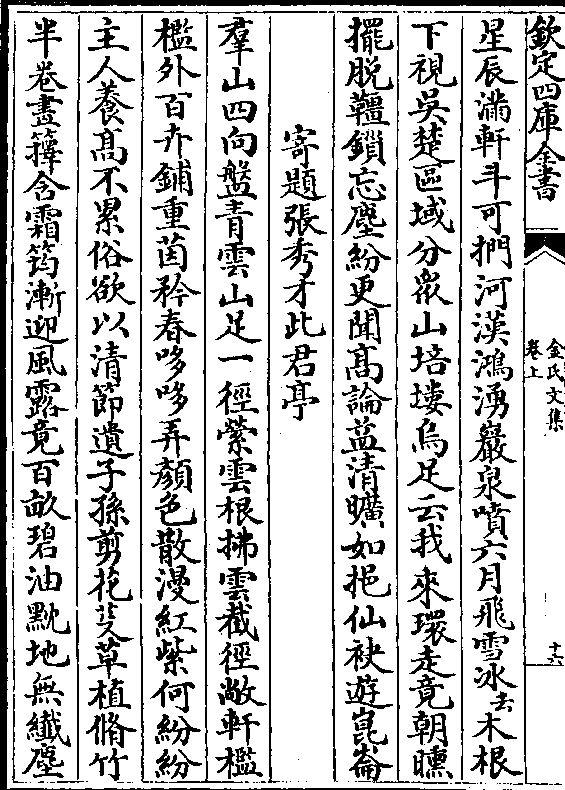 欽定四庫全書
金氏文集
卷上
十六
星辰滿軒斗可捫河漢鴻湧巖泉噴六月飛雪冰去木根
下視吳楚區域分衆山培塿烏足云我來環走竟朝曛
擺脫韁鎖忘塵紛更聞髙論益清曠如挹仙袂遊崑崙
寄題張秀才此君亭
羣山四向盤青雲山足一徑縈雲根拂雲截徑敞軒檻
檻外百卉鋪重茵矜春哆哆弄顔色散漫紅紫何紛紛
主人養髙不累俗欲以清節遺子孫剪花芟草植脩竹
半卷盡籜含霜筠漸迎風露竟百畝碧油黕地無纖塵